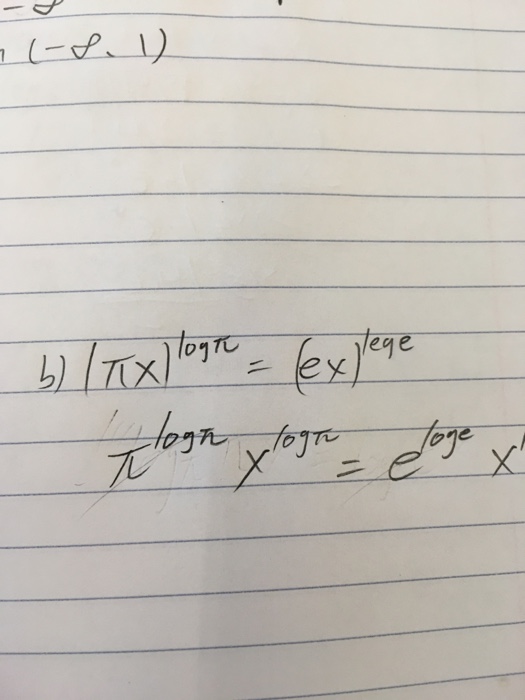 (-∞, 1)
b) (πx)^logπ = (ex)^loge
π^logπ x^logπ = e^loge x